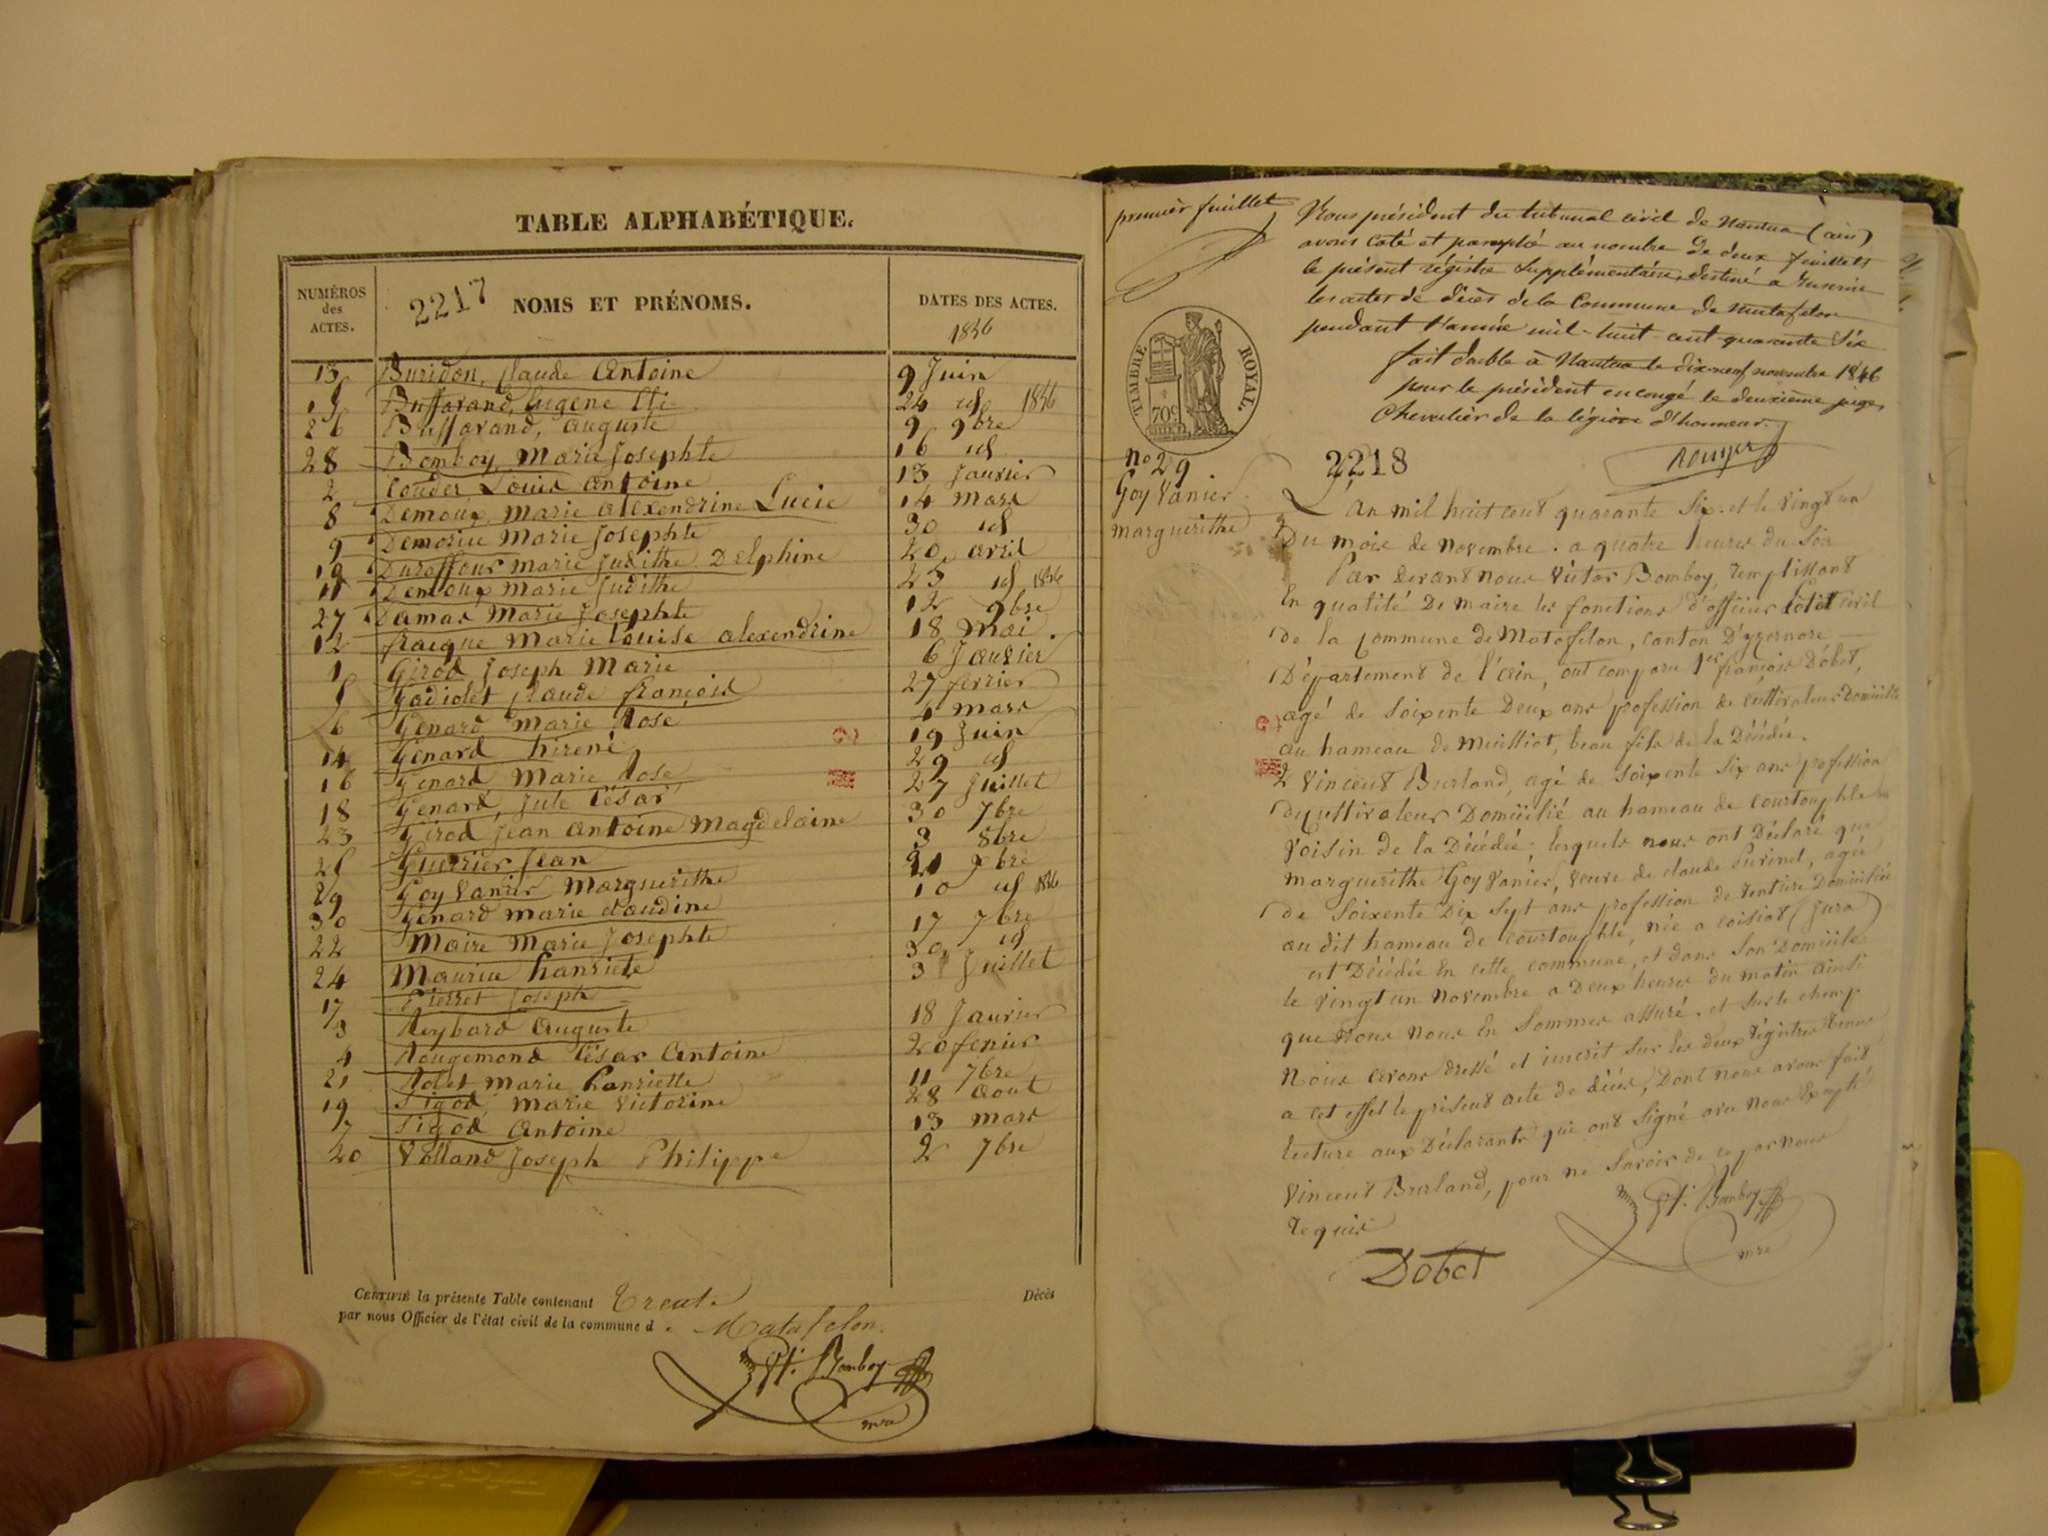 TABLE ALPHABÉTIQUE.
NUMÉROS
des
ACTES.
2217
NOMS ET PRÉNOMS.
DATES DES ACTES.
1846
13 Buridon, Claude Antoine 9 Juin
Buffavand, Eugene Eli 24 id 1846
26 Buffavand, Auguste 9 9bre
28 Bomboy, Marie Josephte 16 id
2 Couder Louis Antoine 13 Janvier
8 Demoux Marie Alexendrine Lucie 14 Mars
9 Marie Josephte 30 id
10 Duraffour Marie Judithe Delphine 20 avril
11 Demoux Marie Judithe 25 id 1846
27 Damas Marie Josephte 12 9bre
12 fracque Marie Louise alexendrine 18 Mai.
1 Girod, Joseph Marie 6 Janvier
5 Gadiolet, Claude françois 27 fevrier
6 Genard Marie Rose 4 mars
14 Génard hirené 19 Juin
16 Genard Marie Rose 29 id
18 Genard, Jule César 27 Juillet
23 Girod Jean Antoine Magdelaine 30 7bre
25 Guerrier Jean 3 8bre
29 Goy Vanier Marguerithe 21 9bre
30 Génard Marie claudine 10 id 1846
22 Maire Marie Josephte 17 7bre
24 Maurice hanriete 30 id
17 Pierret Joseph 3 Juillet
3 Reybard Auguste 18 Janvier
4 Rougemond César Antoine 20 fevrier
21 Rolet Marie hanriette 11 7bre
19 Sigod Marie Victorine 28 Aout
7 Sigod Antoine 13 Mars
20 Volland Joseph Philippe 2 7bre
CERTIFIÉ la présente Table contenant Trente Décès
par nous Officier de l'état civil de la commune d Matafelon.
Bomboy
mre
premier feuillet
Nous président du tribunal civil de Nantua (ain)
avons coté et paraphé au nombre de deux feuillets
le présent régistre supplémentaire, destiné a Inserire
les actes de décès de la Commune de Matafelon
pendant l'année mil-huit-cent-quarante Six
fait double à Nantua le dix-neuf novembre 1846
pour le président en congé le deuxième juge,
Chevalier de la légion d'honneur.
Rouyer
TIMBRE ROYAL.
70c
no 29
Goy Vanier
marguerithe
2218
L'An mil huit cent quarante Six. et le vingt un
Du mois de Novembre. a quatre heures du Soir
Par devant nous Victor Bomboy, remplissant
En qualité De maire les fonctions d'officier Létat civil
De la Commune de Matafelon, canton D'yzernore
Département de l'ain, ont comparu 1er françois Dobet,
agé de Soixente Deux ans profession de cultivateur Domicilié
au hameau de , beau fils de la Décédée.
2 Vincent Burland, agé de Soixente Six ans profession
du cultivateur Domicilié au hameau de Courtouphle
Voisin de la Décédée, lesquels nous ont Déclaré que
Marguerithe Goy Vanier, veuve de claude Perinet, agée
De Soixente Dix Sept ans profession de rentière Domiciliée
au dit hameau de Courtouphle, née a coisiat (Jura)
est Décédée En cette commune, et dans Son Domicile
le vingt un Novembre a Deux heures du matin ainsi
que Nous Nous En Sommes assuré. et sur le champ
Nous avons dressé et inscrit sur les deux régistres tenus
a cet effet le présent acte de décès, Dont nous avons fait
lecture aux Déclarants qui ont Signé avec nous Excepté
Vincent Burland, pour ne Savoir de ce par nous
requis
Dobet
Bomboy
mre